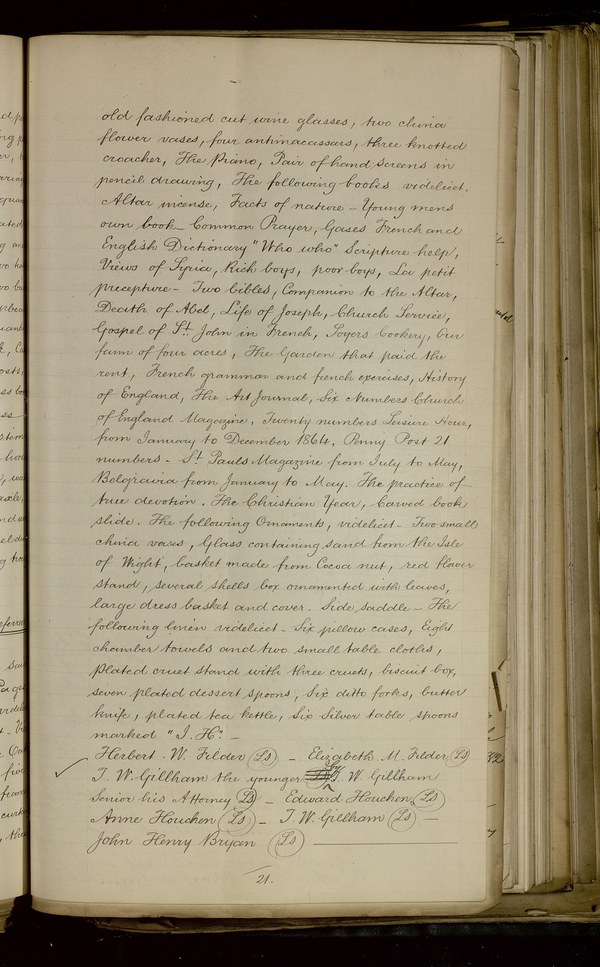 old fashioned cut wine glasses, two china
flower vases, four antimacassars, three knotted
croacher, The Piano, Pair of hand screens in
pencil drawing, The following books videlicet.
Altar incense, Facts of nature - Young mens
own book - Common Prayer, Gases French and
English Dictionary "Who who" Scripture help,
Views of Syria, Rich boys, poor boys, La petit
precepture - Two bibles, Companion to the Altar,
Death of Abel, Life of Joseph, Church Service,
Gospel of St. John in French, Soyers Cookery, Our
farm of four acres, The Garden that paid the
rent, French grammar and french exercises, History
of England, The Art Journal, Six Numbers Church
of England Magazine, Twenty numbers Leisure Hour,
from January to December 1864, Penny Post 21
numbers - St. Pauls Magazine from July to May,
Belgravia from January to May. The practice of
true devotion. The Christian Year, Carved book
slide. The following Ornaments, videlicet - Two small
china vases, Glass containing sand from the Isle
of Wight, basket made from Cocoa nut, red flower
stand, several shells box ornamented with leaves,
large dress basket and cover. Side saddle - The
following linen videlicet - Six pillow cases, Eight
chamber towels and two small table cloths,
plated cruet stand with three cruets, biscuit box,
seven plated dessert spoons, Six ditto forks, butter
knife, plated tea kettle, Six Silver table spoons
marked "J. H". -
Herbert W. Filder (Ls) - Elizabeth M. Filder (Ls)
T. W. Gillham the younger by T. W Gillham
Senior his Attorney (Ls) - Edward Houchen (Ls)
Anne Houchen (Ls) - T. W. Gillham (Ls) -
John Henry Bryan (Ls)
21.